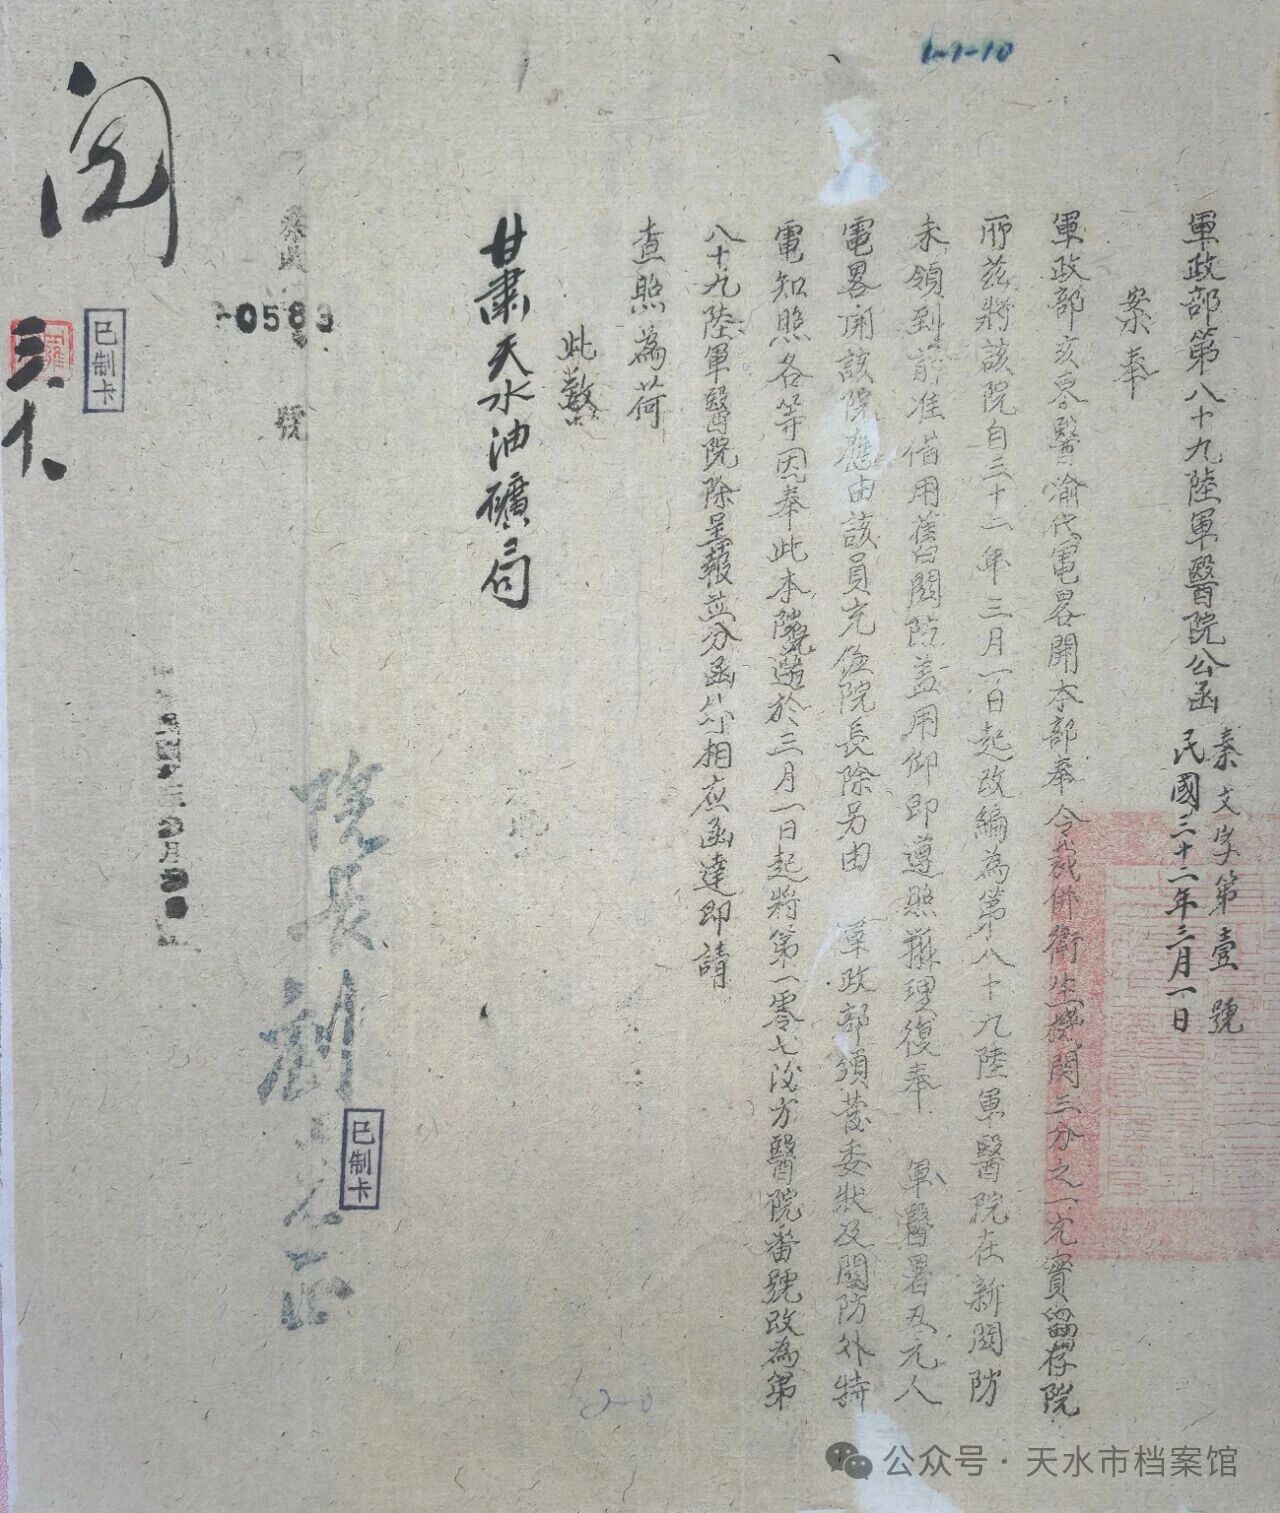 軍政部第八十九陸軍醫院公函
秦文字第壹號
民國三十二年三月一日
案奉
軍政部亥寒醫渝代電畧開本部奉令裁併衛生機関三分之一充實留存院
所茲將該院自三十二年三月一日起改編為第八十九陸軍醫院在新関防
未領到前准借用舊関防蓋用仰即遵照辦理復奉 軍醫署丑元人
電畧開該院應由該員充任院長除另由 軍政部頒發委狀及関防外特
電知照各等因奉此本院遵於三月一日起將第一零七後方醫院番號改為第
八十九陸軍醫院除呈報並分函外相應函達即請
查照為荷
此致
甘肅天水油礦局
院長劉
正
0583
號
已制卡
已制卡
閱
三、十、
1-1-10
公众号·天水市档案馆